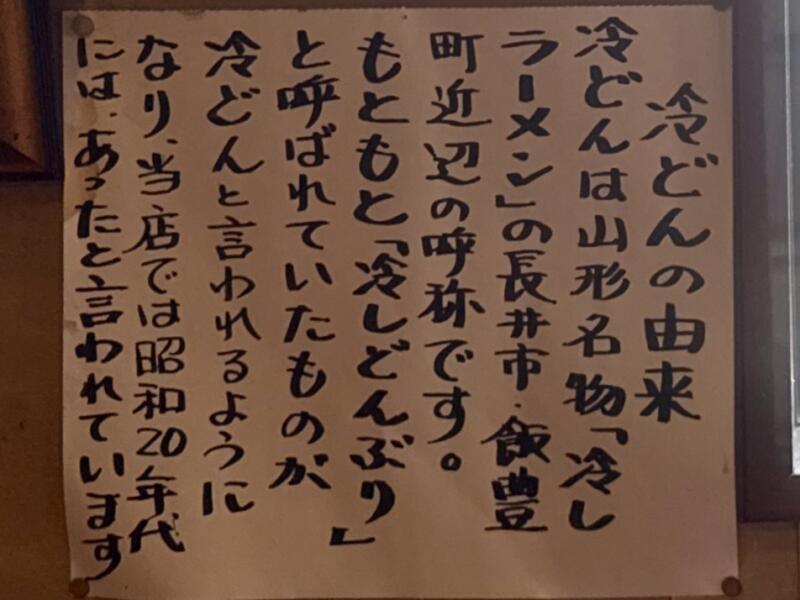 冷どんの由来
冷どんは山形名物「冷し
ラーメン」の長井市・飯豊
町近辺の呼称です。
もともと「冷しどんぶり」
と呼ばれていたものが
冷どんと言われるように
なり、当店では昭和20年代
には、あったと言われています